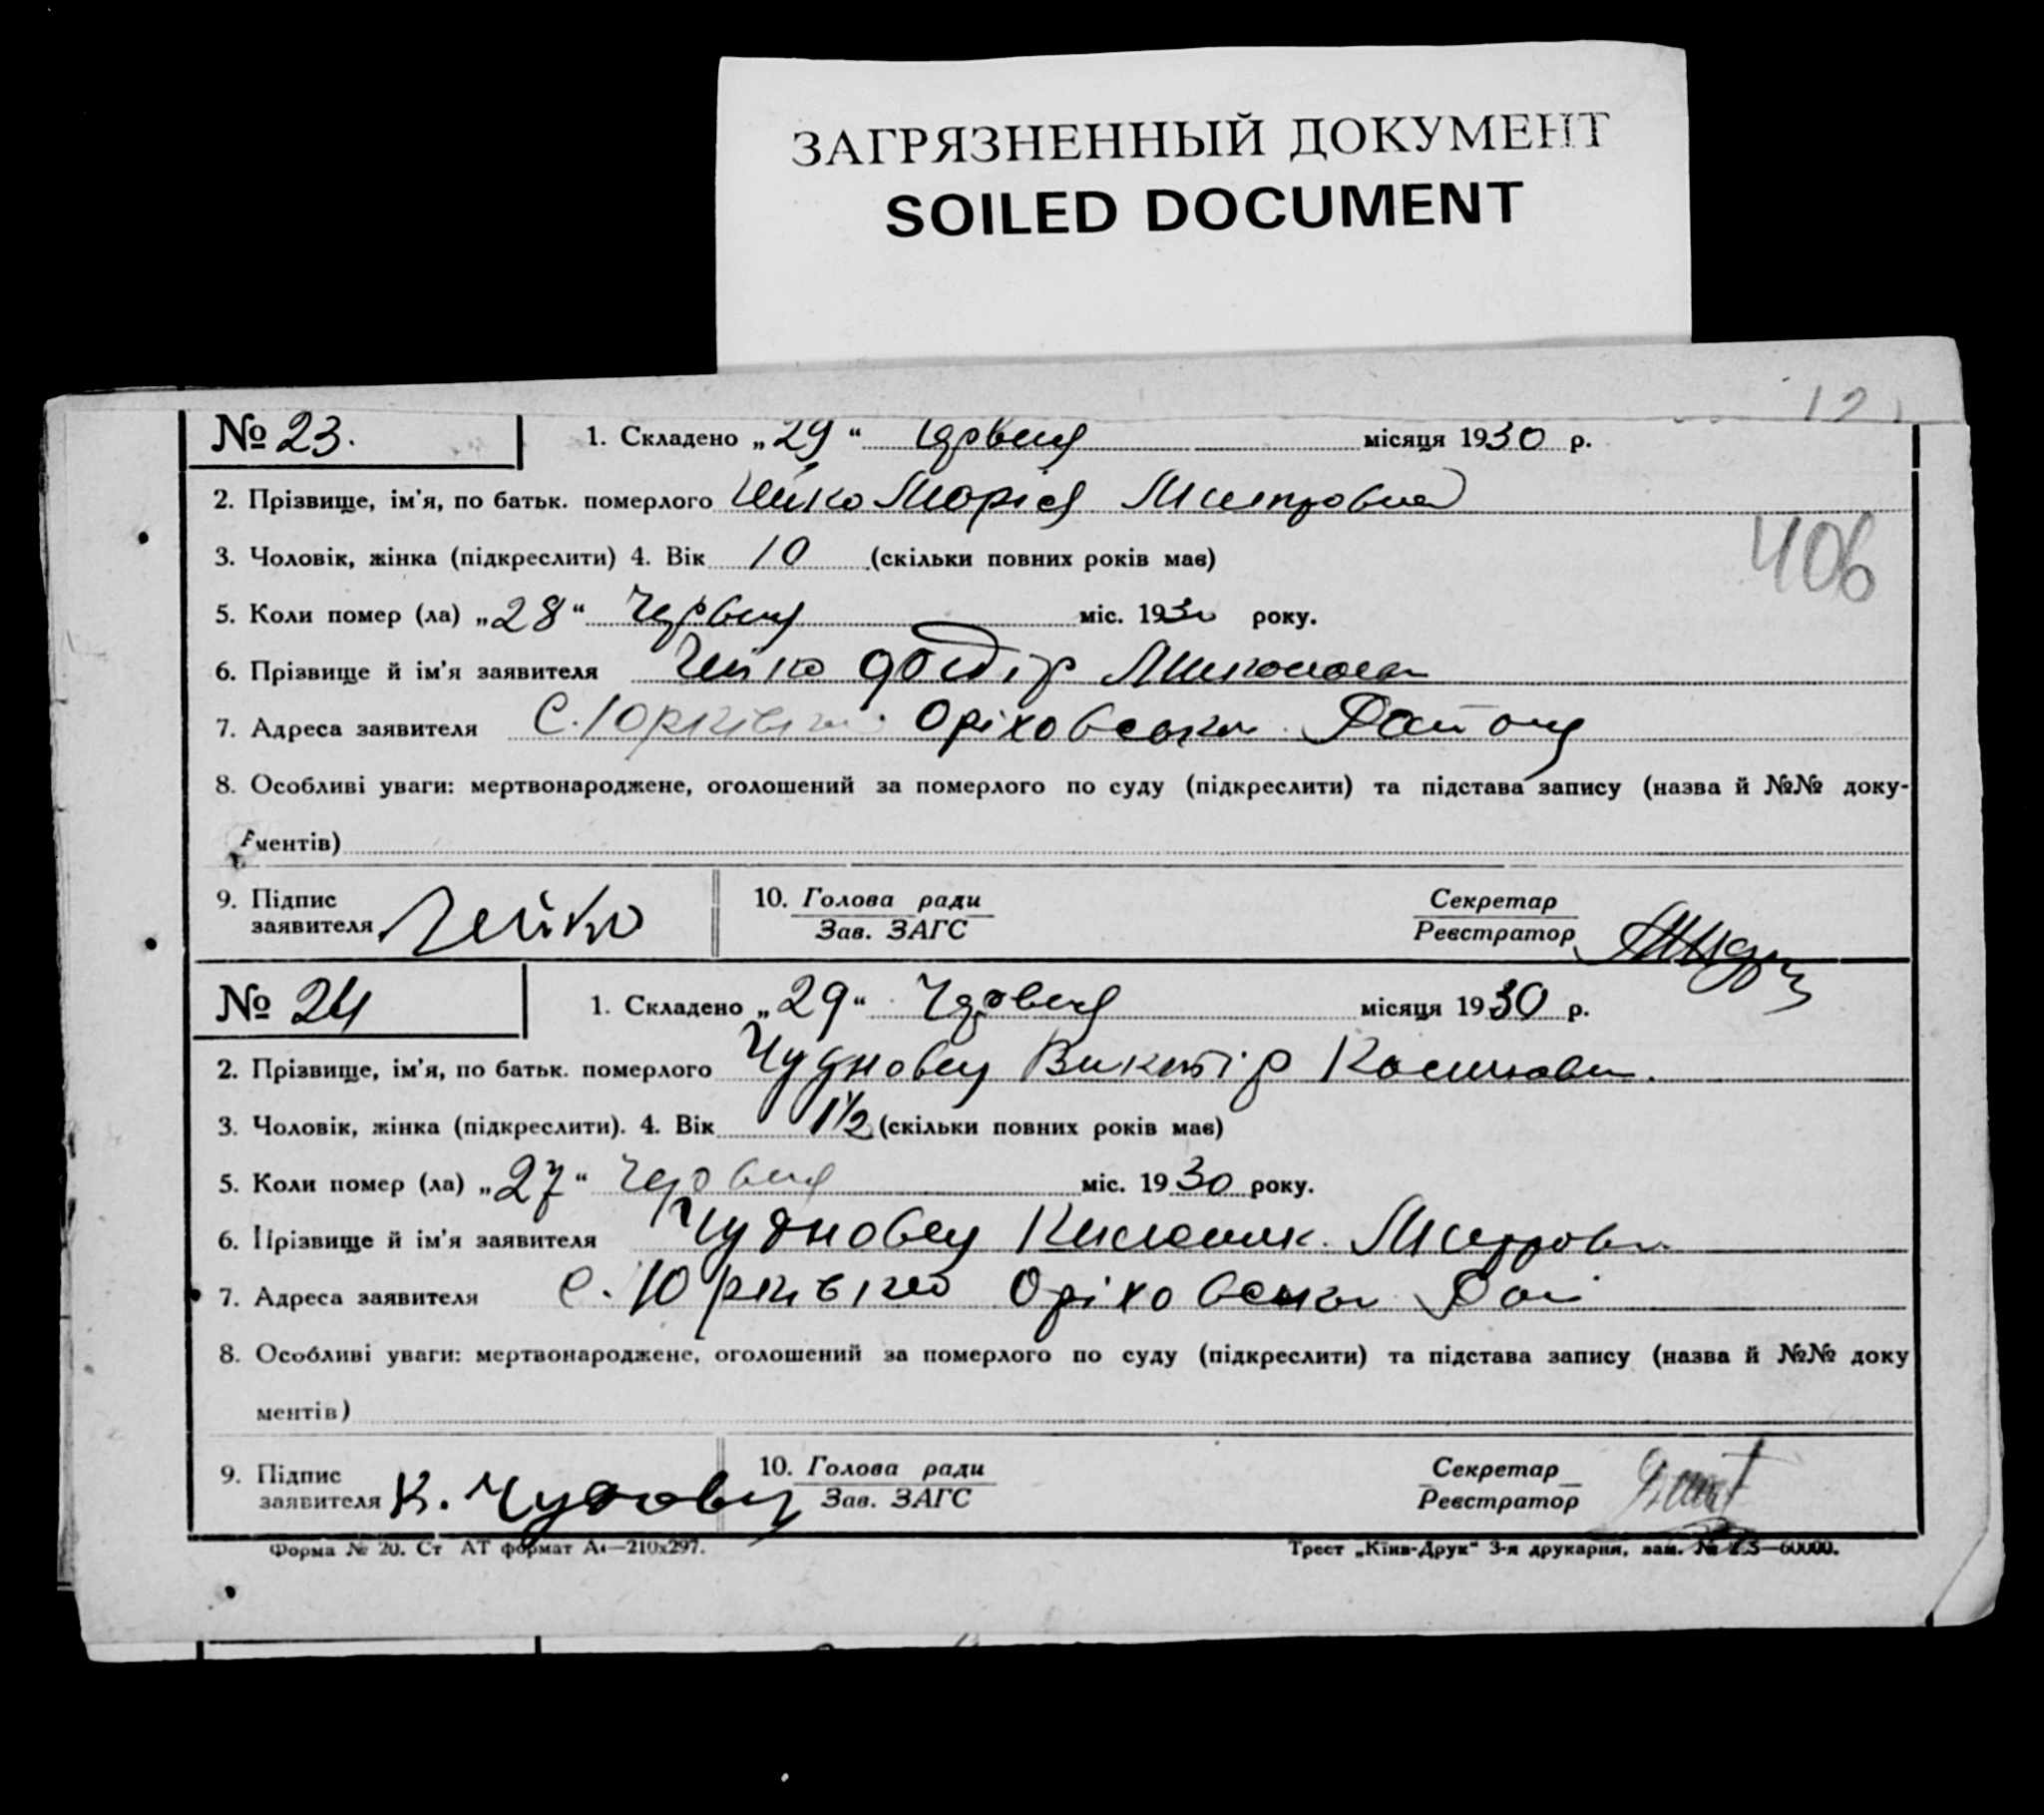 ЗАГРЯЗНЕННЫЙ ДОКУМЕНТ
SOILED DOCUMENT
№ 23. 1. Складено „29“ червня місяця 1930 р.
2. Прізвище, ім'я, по батьк. померлого Чейко Марія
406
3. Чоловік, жінка (підкреслити) 4. Вік 10 (скільки повних років має)
5. Коли помер (ла) „28“ Червня міс. 1930 року.
6. Прізвище й ім'я заявителя Чейко
7. Адреса заявителя С. Юрківка Оріховськ Району
8. Особливі уваги: мертвонароджене, оголошений за померлого по суду (підкреслити) та підстава запису (назва й №№ доку-
ментів)
9. Підпис заявителя Чейко 10. Голова ради Зав. ЗАГС Секретар Реєстратор
№ 24 1. Складено „29“ Червня місяця 1930 р.
2. Прізвище, ім'я, по батьк. померлого Чудновец Виктір
3. Чоловік, жінка (підкреслити). 4. Вік 1½ (скільки повних років має)
5. Коли помер (ла) „27“ Червня міс. 1930 року.
6. Прізвище й ім'я заявителя Чудновец
7. Адреса заявителя с. Юрківка Оріховськ Рай
8. Особливі уваги: мертвонароджене, оголошений за померлого по суду (підкреслити) та підстава запису (назва й №№ доку
ментів)
9. Підпис заявителя К. 10. Голова ради Зав. ЗАГС Секретар Реєстратор
Форма № 20. Ст АТ формат А4—210х297. Трест „Київ-Друк“ 3-я друкарня, зам. №